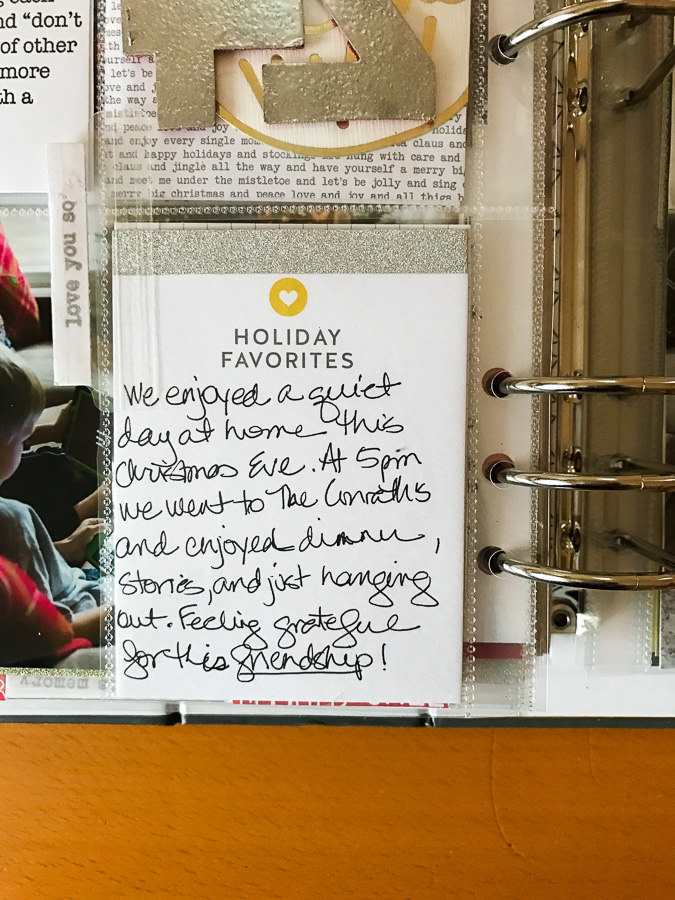 nd “don’t
of other
more
th a
let's be
the way
mistletoe
and peace love and joy holida
and enjoy every single mom ta claus and
t and happy holidays and stockings are hung with care and
claus and jingle all the way and have yourself a merry big
and meet me under the mistletoe and let's be jolly and sing
merry big christmas and peace love and joy and all things b
love you so
HOLIDAY
FAVORITES
We enjoyed a quiet
day at home this
Christmas Eve. At 5pm
we went to The Conrath's
and enjoyed dinner,
stories, and just hanging
out. Feeling grateful
for this friendship!